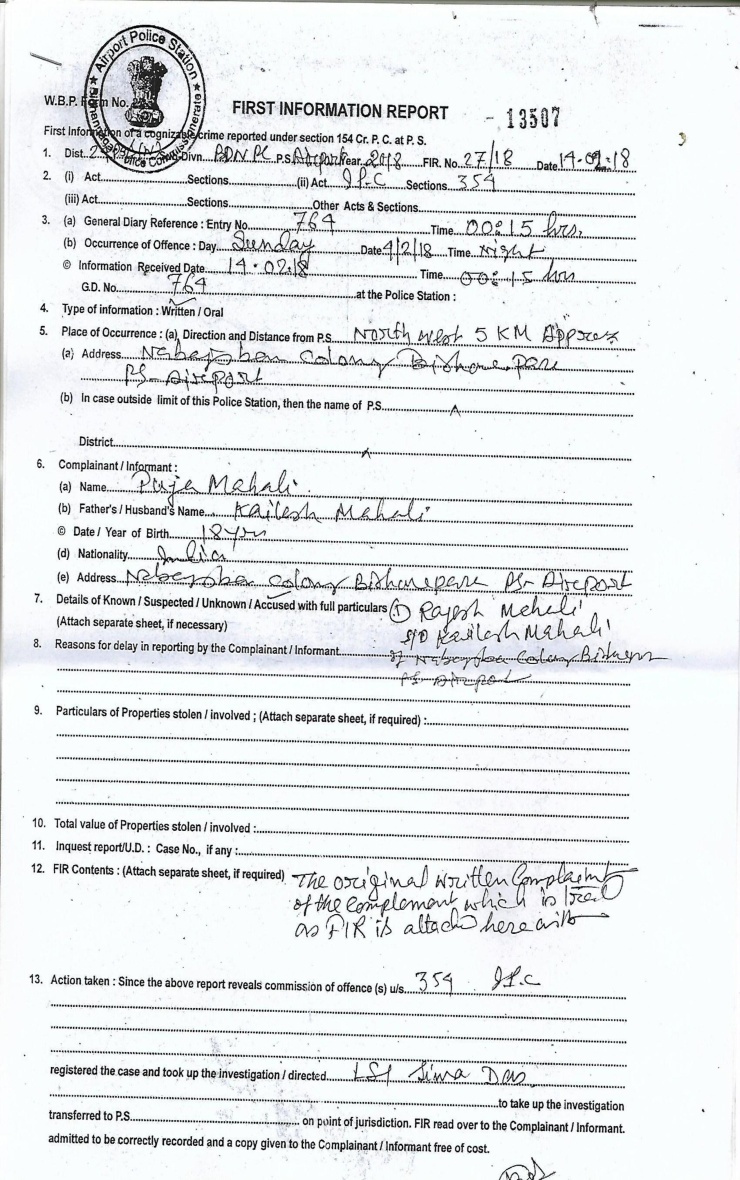 Airport Police Station
W.B.P. Form No.
FIRST INFORMATION REPORT - 13507
First Information of a cognizable crime reported under section 154 Cr. P. C. at P. S.
1. Dist. Divn. BDN PC P.S. Airport Year 2018 FIR. No. 27/18 Date 14-02-18
2. (i) Act Sections (ii) Act I.P.C Sections 354
(iii) Act Sections Other Acts & Sections
3. (a) General Diary Reference : Entry No. 764 Time 00:15 hrs.
(b) Occurrence of Offence : Day Sunday Date 4/2/18 Time Night
© Information Received Date 14.02.18 Time 00:15 hrs
G.D. No. 764 at the Police Station :
4. Type of information : Written / Oral
5. Place of Occurrence : (a) Direction and Distance from P.S. North West 5 KM Approx
(a) Address Colony
PS- Airport
(b) In case outside limit of this Police Station, then the name of P.S.
District
6. Complainant / Informant :
(a) Name Puja Mahali
(b) Father's / Husband's Name Kailesh Mahali
© Date / Year of Birth 18 yrs
(d) Nationality India
(e) Address Colony PS- Airport
7. Details of Known / Suspected / Unknown / Accused with full particulars ① Rajesh Mahali
(Attach separate sheet, if necessary) S/O Kailesh Mahali
8. Reasons for delay in reporting by the Complainant / Informant Colony
PS- Airport
9. Particulars of Properties stolen / involved ; (Attach separate sheet, if required) :
10. Total value of Properties stolen / involved :
11. Inquest report/U.D. : Case No., if any :
12. FIR Contents : (Attach separate sheet, if required) The original written Complaint
of the complement which is
as FIR is attach here with
13. Action taken : Since the above report reveals commission of offence (s) u/s. 354 I.P.C
registered the case and took up the investigation / directed LSI Sima Das
to take up the investigation
transferred to P.S. on point of jurisdiction. FIR read over to the Complainant / Informant.
admitted to be correctly recorded and a copy given to the Complainant / Informant free of cost.